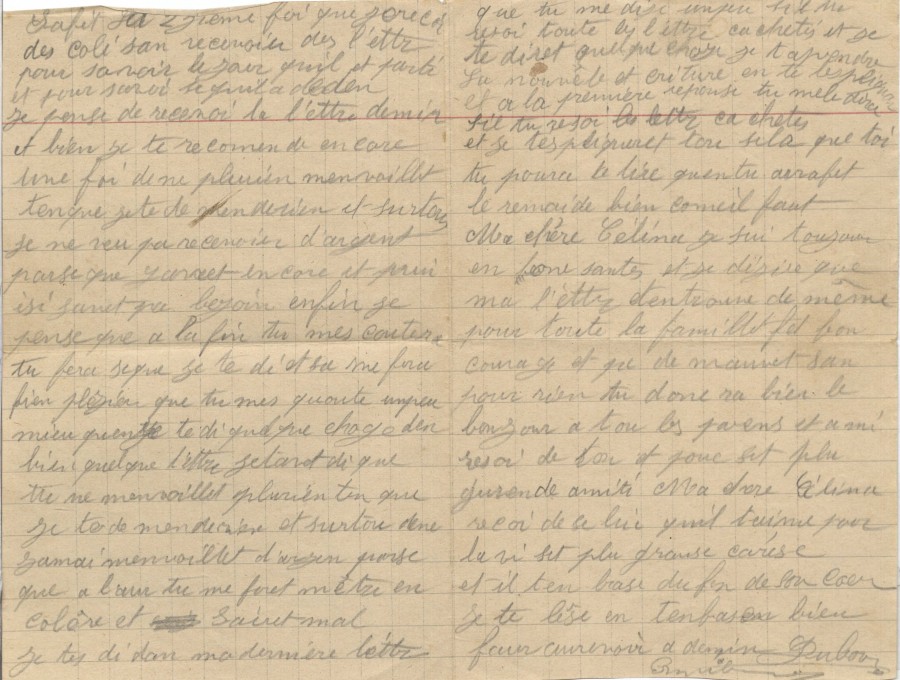 safet la zième foi que je recoi
des colé san recevoir des l'êttr
pour savoir le jour quil et parté
et pour savoir sequil a deden
je pense de recevoi la l'êttr demin
et bien je te recomende encore
une foi de ne plurién menvoillet
tenque je te demenderien et surtou
je ne veu pa recevoier d'argant
parse que jan et encore et puis
isi sanet pa bejoin enfin je
pense que a la fin tu mes coutera
tu fera seque je te di et sa me fera
bien plézier que tu mes quoute unpeu
mieu quen je te di quelque choze den
bien quelque l'êttre je taret di que
tu ne menvoillet plurién ten que
je te demenderien et surtou de ne
jamai menvoillet d'arjen parse
que a l'aur tu me feret mêtre en
colêre et sairet mal
je tes di dan ma dernière l'êttr
que tu me dise unpeu sil ne
resoi toute les l'êttre cachetés et je
te diret quelque choze je t'aprendre
la nouvêle et écriture en te lesplique
et a la première réponse tu mele dira
sil tu resoi les lettr cachetés
et je tespligueret tou sela que toi
tu poura le lire quen tu aurafet
le remaide bien comeil faut
Ma chêre Célina je sui toujour
en bone santés et je dézire que
ma l'êttre tentrouve de même
pour toute la famillet fet bon
courage et pa de mauvet san
pour rien tu donera bien le
bonjour a tou les parens et ami
resoi de ton et pouc set plu
gurende amiti Ma chere Célina
recoi de se lui quil taime pour
la vi set plu granse carése
et il ten brase du fon de son coeur
je te lèse en tenbrasen bien
faur aurevoir a demin Dubour
Emile